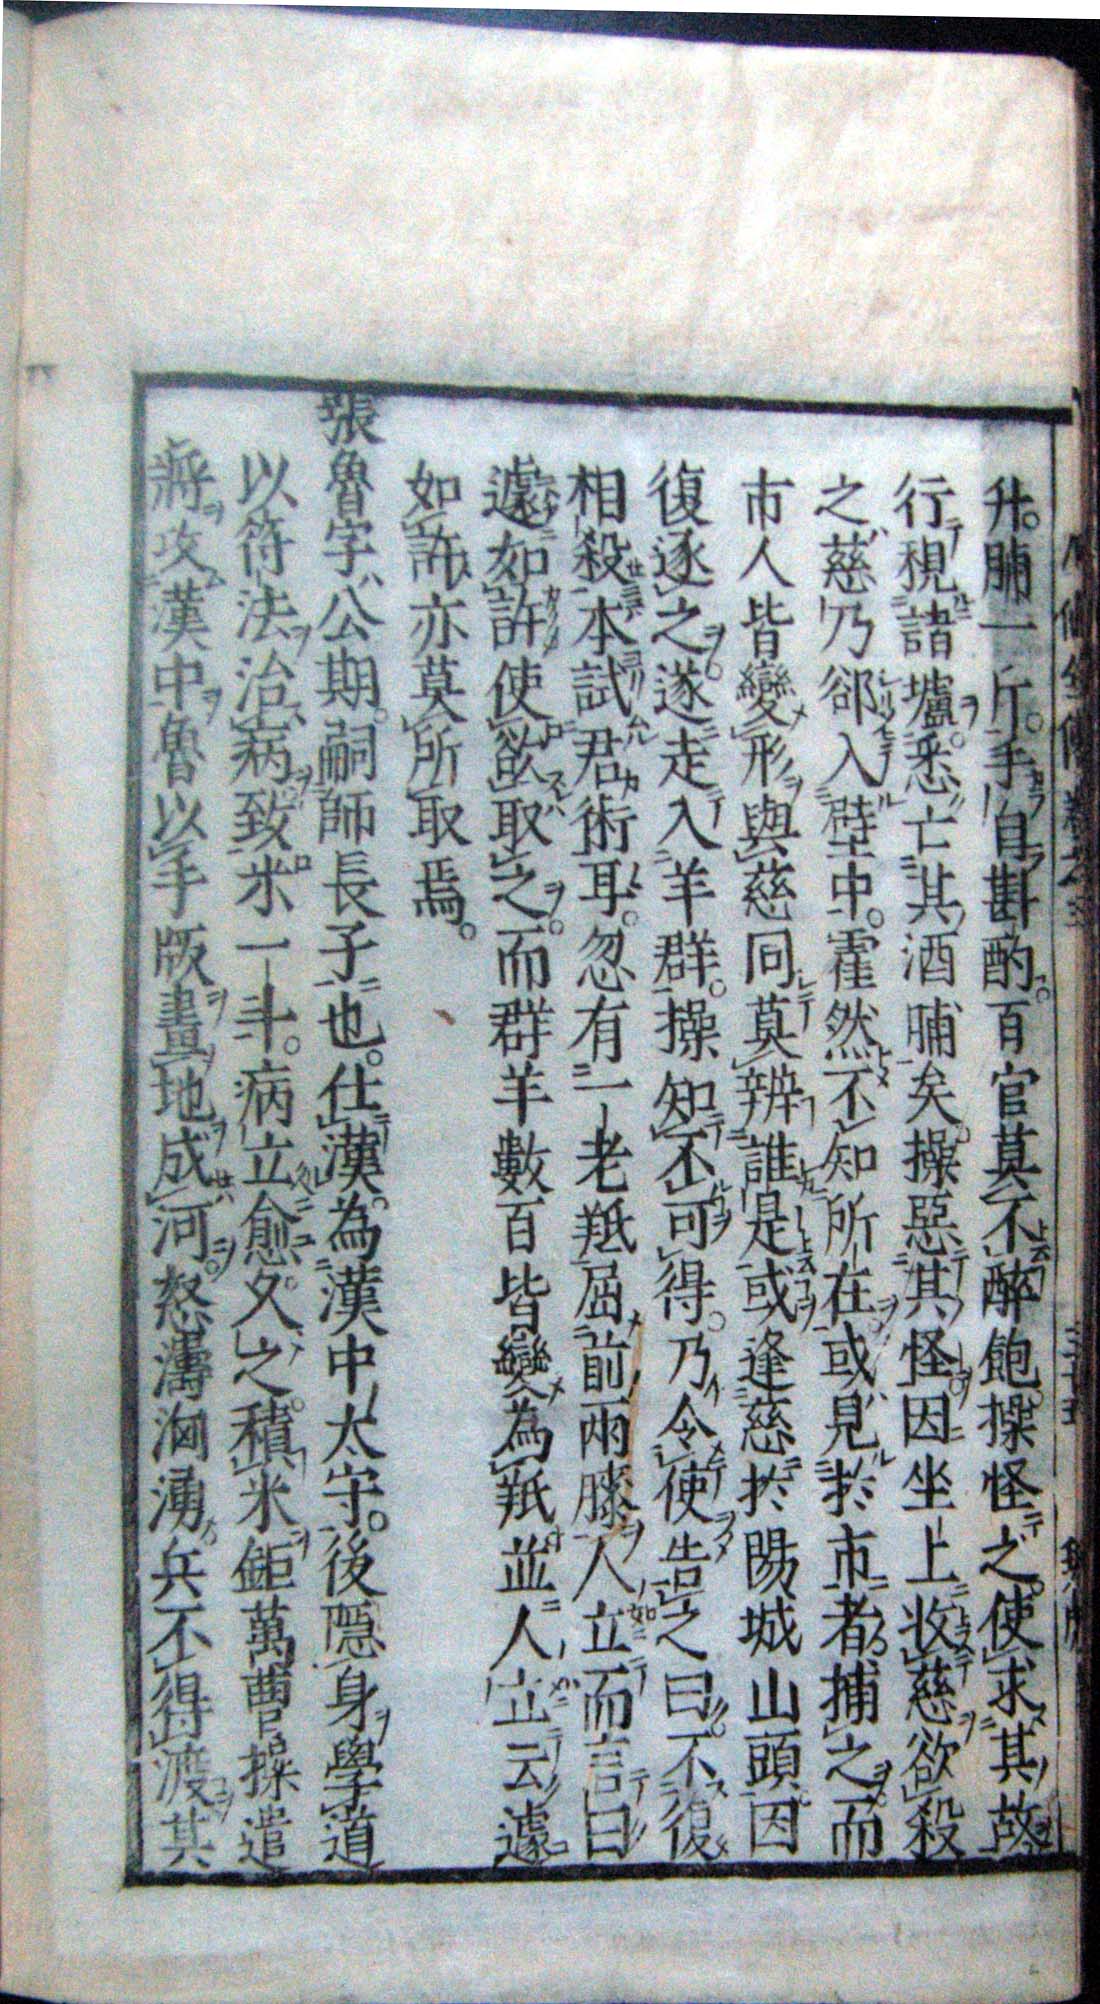 升脯一斤手自斟酌百官莫不醉飽操怪之使求其故
行視諸壚悉亡其酒脯矣操惡其怪因坐上收慈欲殺
之慈乃郤入壁中霍然不知所在或見於市者捕之而
市人皆變形與慈同莫辨誰是或逢慈於陽城山頭因
復逐之遂走入羊群操知不可得乃令使告之曰不復
相殺本試君術耳忽有一老羝屈前兩膝人立而言曰
遽如許使欲取之而群羊數百皆變為羝並人立云遽
如許亦莫所取焉
張魯字公期嗣師長子也仕漢為漢中太守後隱身學道
以符法治病致米一斗病立愈久之積米鉅萬曹操遣
將攻漢中魯以手版畫地成河怒濤洶湧兵不得渡其